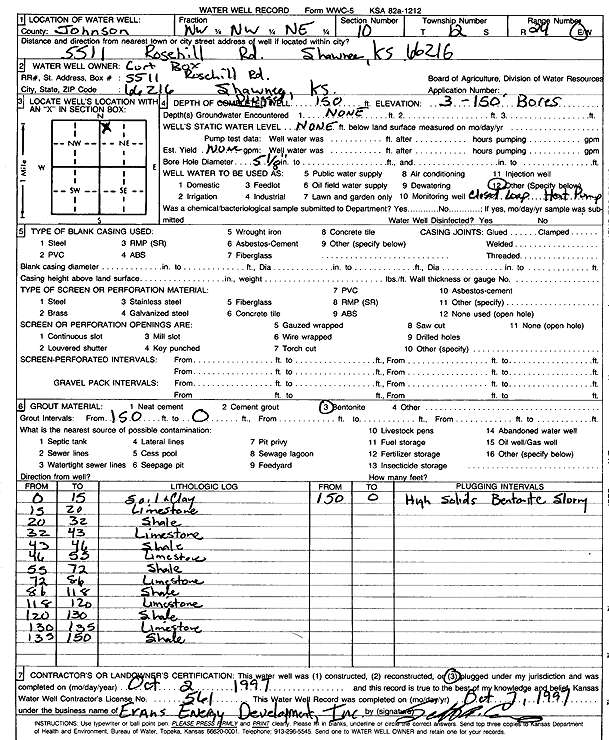 WATER WELL RECORD Form WWC-5 KSA 82a-1212
1 LOCATION OF WATER WELL: Fraction Section Number Township Number Range Number
County: Johnson NW ¼ NW ¼ NE ¼ 10 T 12 S R 24 E/W
Distance and direction from nearest town or city street address of well if located within city?
5511 Rosehill Rd. Shawnee, KS 66216
2 WATER WELL OWNER: Curt Box
RR#, St. Address, Box # : 5511 Rosehill Rd. Board of Agriculture, Division of Water Resources
City, State, ZIP Code : 66216 Shawnee, KS. Application Number:
3 LOCATE WELL'S LOCATION WITH AN "X" IN SECTION BOX:
N
X
NW NE
W E
SW SE
S
1 Mile
4 DEPTH OF COMPLETED WELL 150 ft. ELEVATION: 3-150' Bores
Depth(s) Groundwater Encountered 1. NONE ft. 2. ft. 3. ft.
WELL'S STATIC WATER LEVEL NONE ft. below land surface measured on mo/day/yr
Pump test data: Well water was ft. after hours pumping gpm
Est. Yield NONE gpm: Well water was ft. after hours pumping gpm
Bore Hole Diameter 5 1/8" in. to ft., and in. to ft.
WELL WATER TO BE USED AS: 5 Public water supply 8 Air conditioning 11 Injection well
1 Domestic 3 Feedlot 6 Oil field water supply 9 Dewatering 12 Other (Specify below)
2 Irrigation 4 Industrial 7 Lawn and garden only 10 Monitoring well Closed Loop Heat Pump
Was a chemical/bacteriological sample submitted to Department? Yes No ; If yes, mo/day/yr sample was submitted Water Well Disinfected? Yes No
5 TYPE OF BLANK CASING USED: 5 Wrought iron 8 Concrete tile CASING JOINTS: Glued Clamped
1 Steel 3 RMP (SR) 6 Asbestos-Cement 9 Other (specify below) Welded
2 PVC 4 ABS 7 Fiberglass Threaded
Blank casing diameter in. to ft., Dia in. to ft., Dia in. to ft.
Casing height above land surface in., weight lbs./ft. Wall thickness or gauge No.
TYPE OF SCREEN OR PERFORATION MATERIAL: 7 PVC 10 Asbestos-cement
1 Steel 3 Stainless steel 5 Fiberglass 8 RMP (SR) 11 Other (specify)
2 Brass 4 Galvanized steel 6 Concrete tile 9 ABS 12 None used (open hole)
SCREEN OR PERFORATION OPENINGS ARE: 5 Gauzed wrapped 8 Saw cut 11 None (open hole)
1 Continuous slot 3 Mill slot 6 Wire wrapped 9 Drilled holes
2 Louvered shutter 4 Key punched 7 Torch cut 10 Other (specify)
SCREEN-PERFORATED INTERVALS: From ft. to ft., From ft. to ft.
From ft. to ft., From ft. to ft.
GRAVEL PACK INTERVALS: From ft. to ft., From ft. to ft.
From ft. to ft., From ft. to ft.
6 GROUT MATERIAL: 1 Neat cement 2 Cement grout 3 Bentonite 4 Other
Grout Intervals: From 150 ft. to 0 ft., From ft. to ft., From ft. to ft.
What is the nearest source of possible contamination: 10 Livestock pens 14 Abandoned water well
1 Septic tank 4 Lateral lines 7 Pit privy 11 Fuel storage 15 Oil well/Gas well
2 Sewer lines 5 Cess pool 8 Sewage lagoon 12 Fertilizer storage 16 Other (specify below)
3 Watertight sewer lines 6 Seepage pit 9 Feedyard 13 Insecticide storage
Direction from well? How many feet?
FROM TO LITHOLOGIC LOG FROM TO PLUGGING INTERVALS
0 15 Soil & Clay 150 0 High Solids Bentonite Slurry
15 20 Limestone
20 32 Shale
32 43 Limestone
43 46 Shale
46 55 Limestone
55 72 Shale
72 86 Limestone
86 118 Shale
118 120 Limestone
120 130 Shale
130 135 Limestone
135 150 Shale
7 CONTRACTOR'S OR LANDOWNER'S CERTIFICATION: This water well was (1) constructed, (2) reconstructed, or (3) plugged under my jurisdiction and was
completed on (mo/day/year) Oct 2 1997 and this record is true to the best of my knowledge and belief. Kansas
Water Well Contractor's License No. 561 This Water Well Record was completed on (mo/day/yr) Oct 7, 1997
under the business name of Evans Energy Development, Inc by (signature)
INSTRUCTIONS: Use typewriter or ball point pen. PLEASE PRESS FIRMLY and PRINT clearly. Please fill in blanks, underline or circle the correct answers. Send top three copies to Kansas Department
of Health and Environment, Bureau of Water, Topeka, Kansas 66620-0001. Telephone: 913-296-5545. Send one to WATER WELL OWNER and retain one for your records.